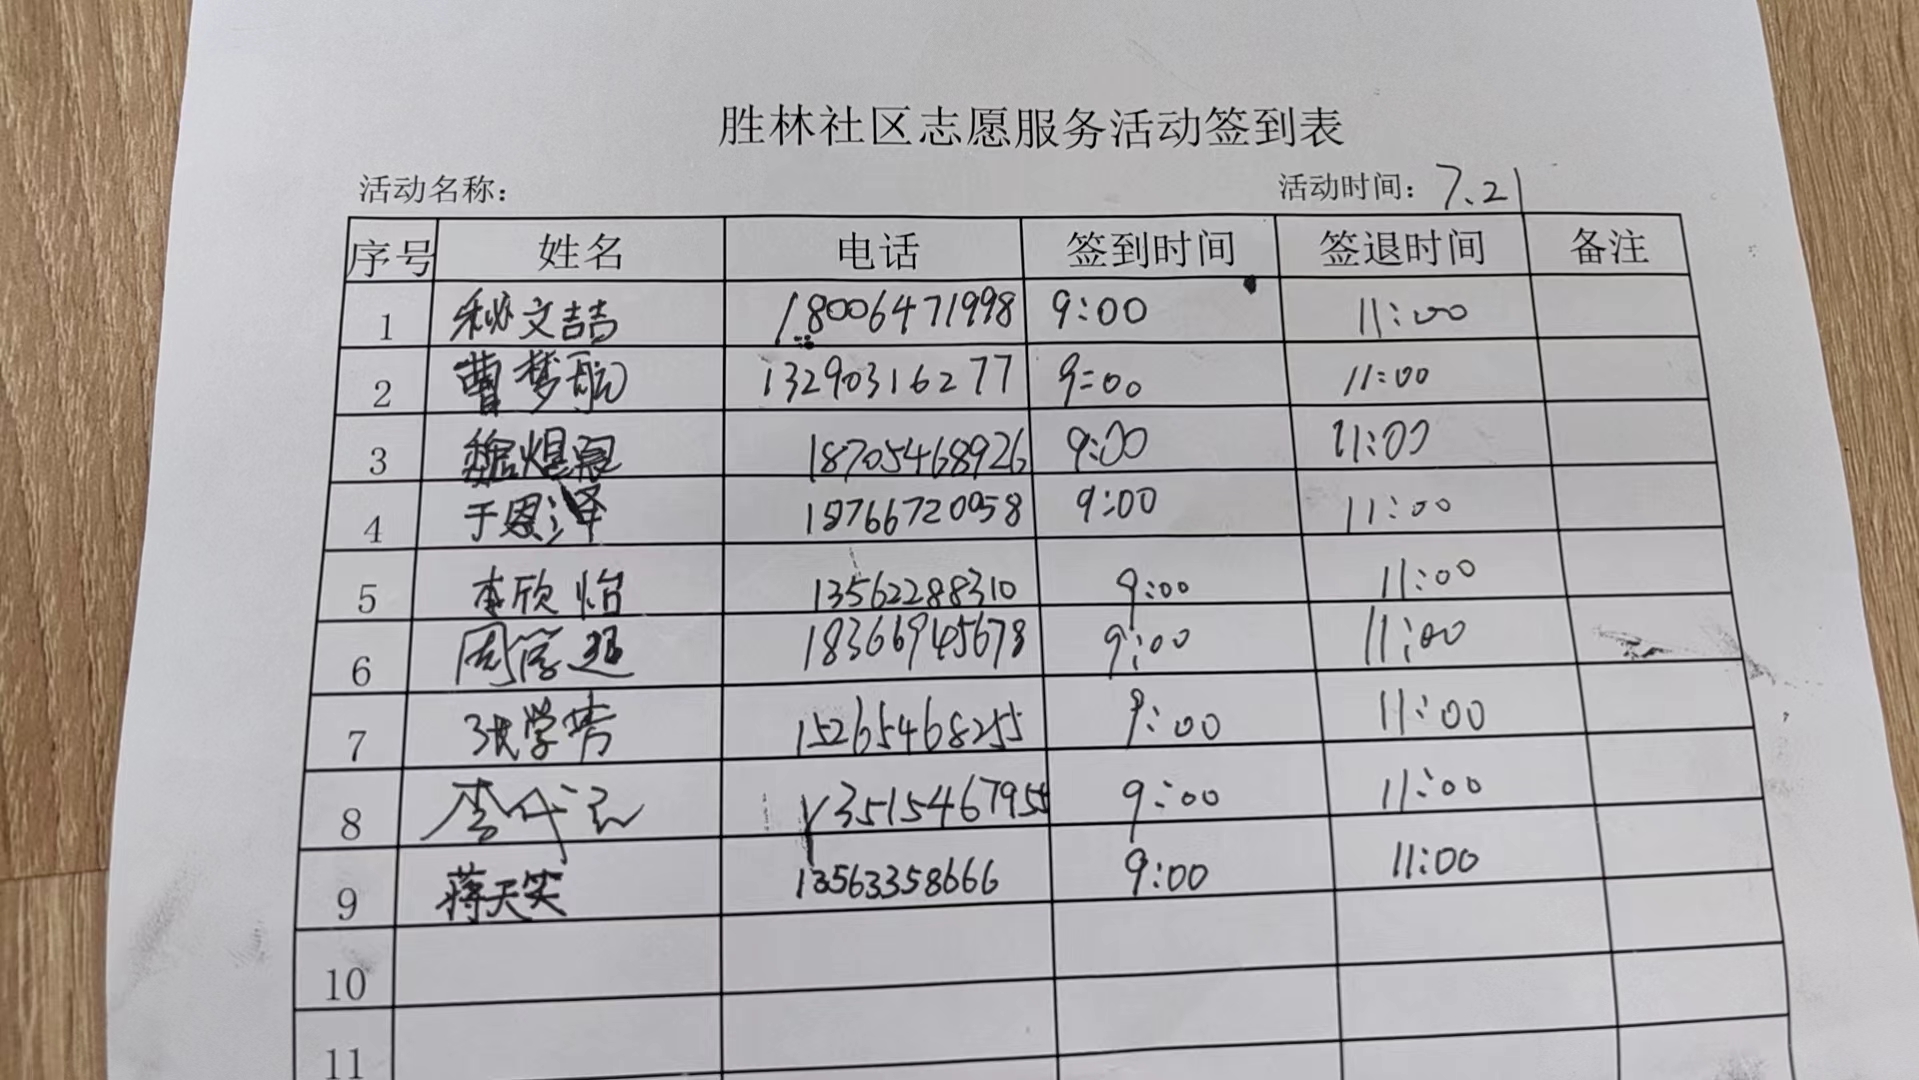 胜林社区志愿服务活动签到表
活动名称： 活动时间：7.21
序号 姓名 电话 签到时间 签退时间 备注
1 秘文喆 18006471998 9:00 11:00
2 曹梦航 13290316277 9:00 11:00
3 魏煜 18705468926 9:00 11:00
4 于恩泽 18766720058 9:00 11:00
5 李欣怡 13562288310 9:00 11:00
6 周学延 18366945678 9:00 11:00
7 张学芳 15265468255 9:00 11:00
8 李代 13515467955 9:00 11:00
9 蒋天实 13563358666 9:00 11:00
10
11